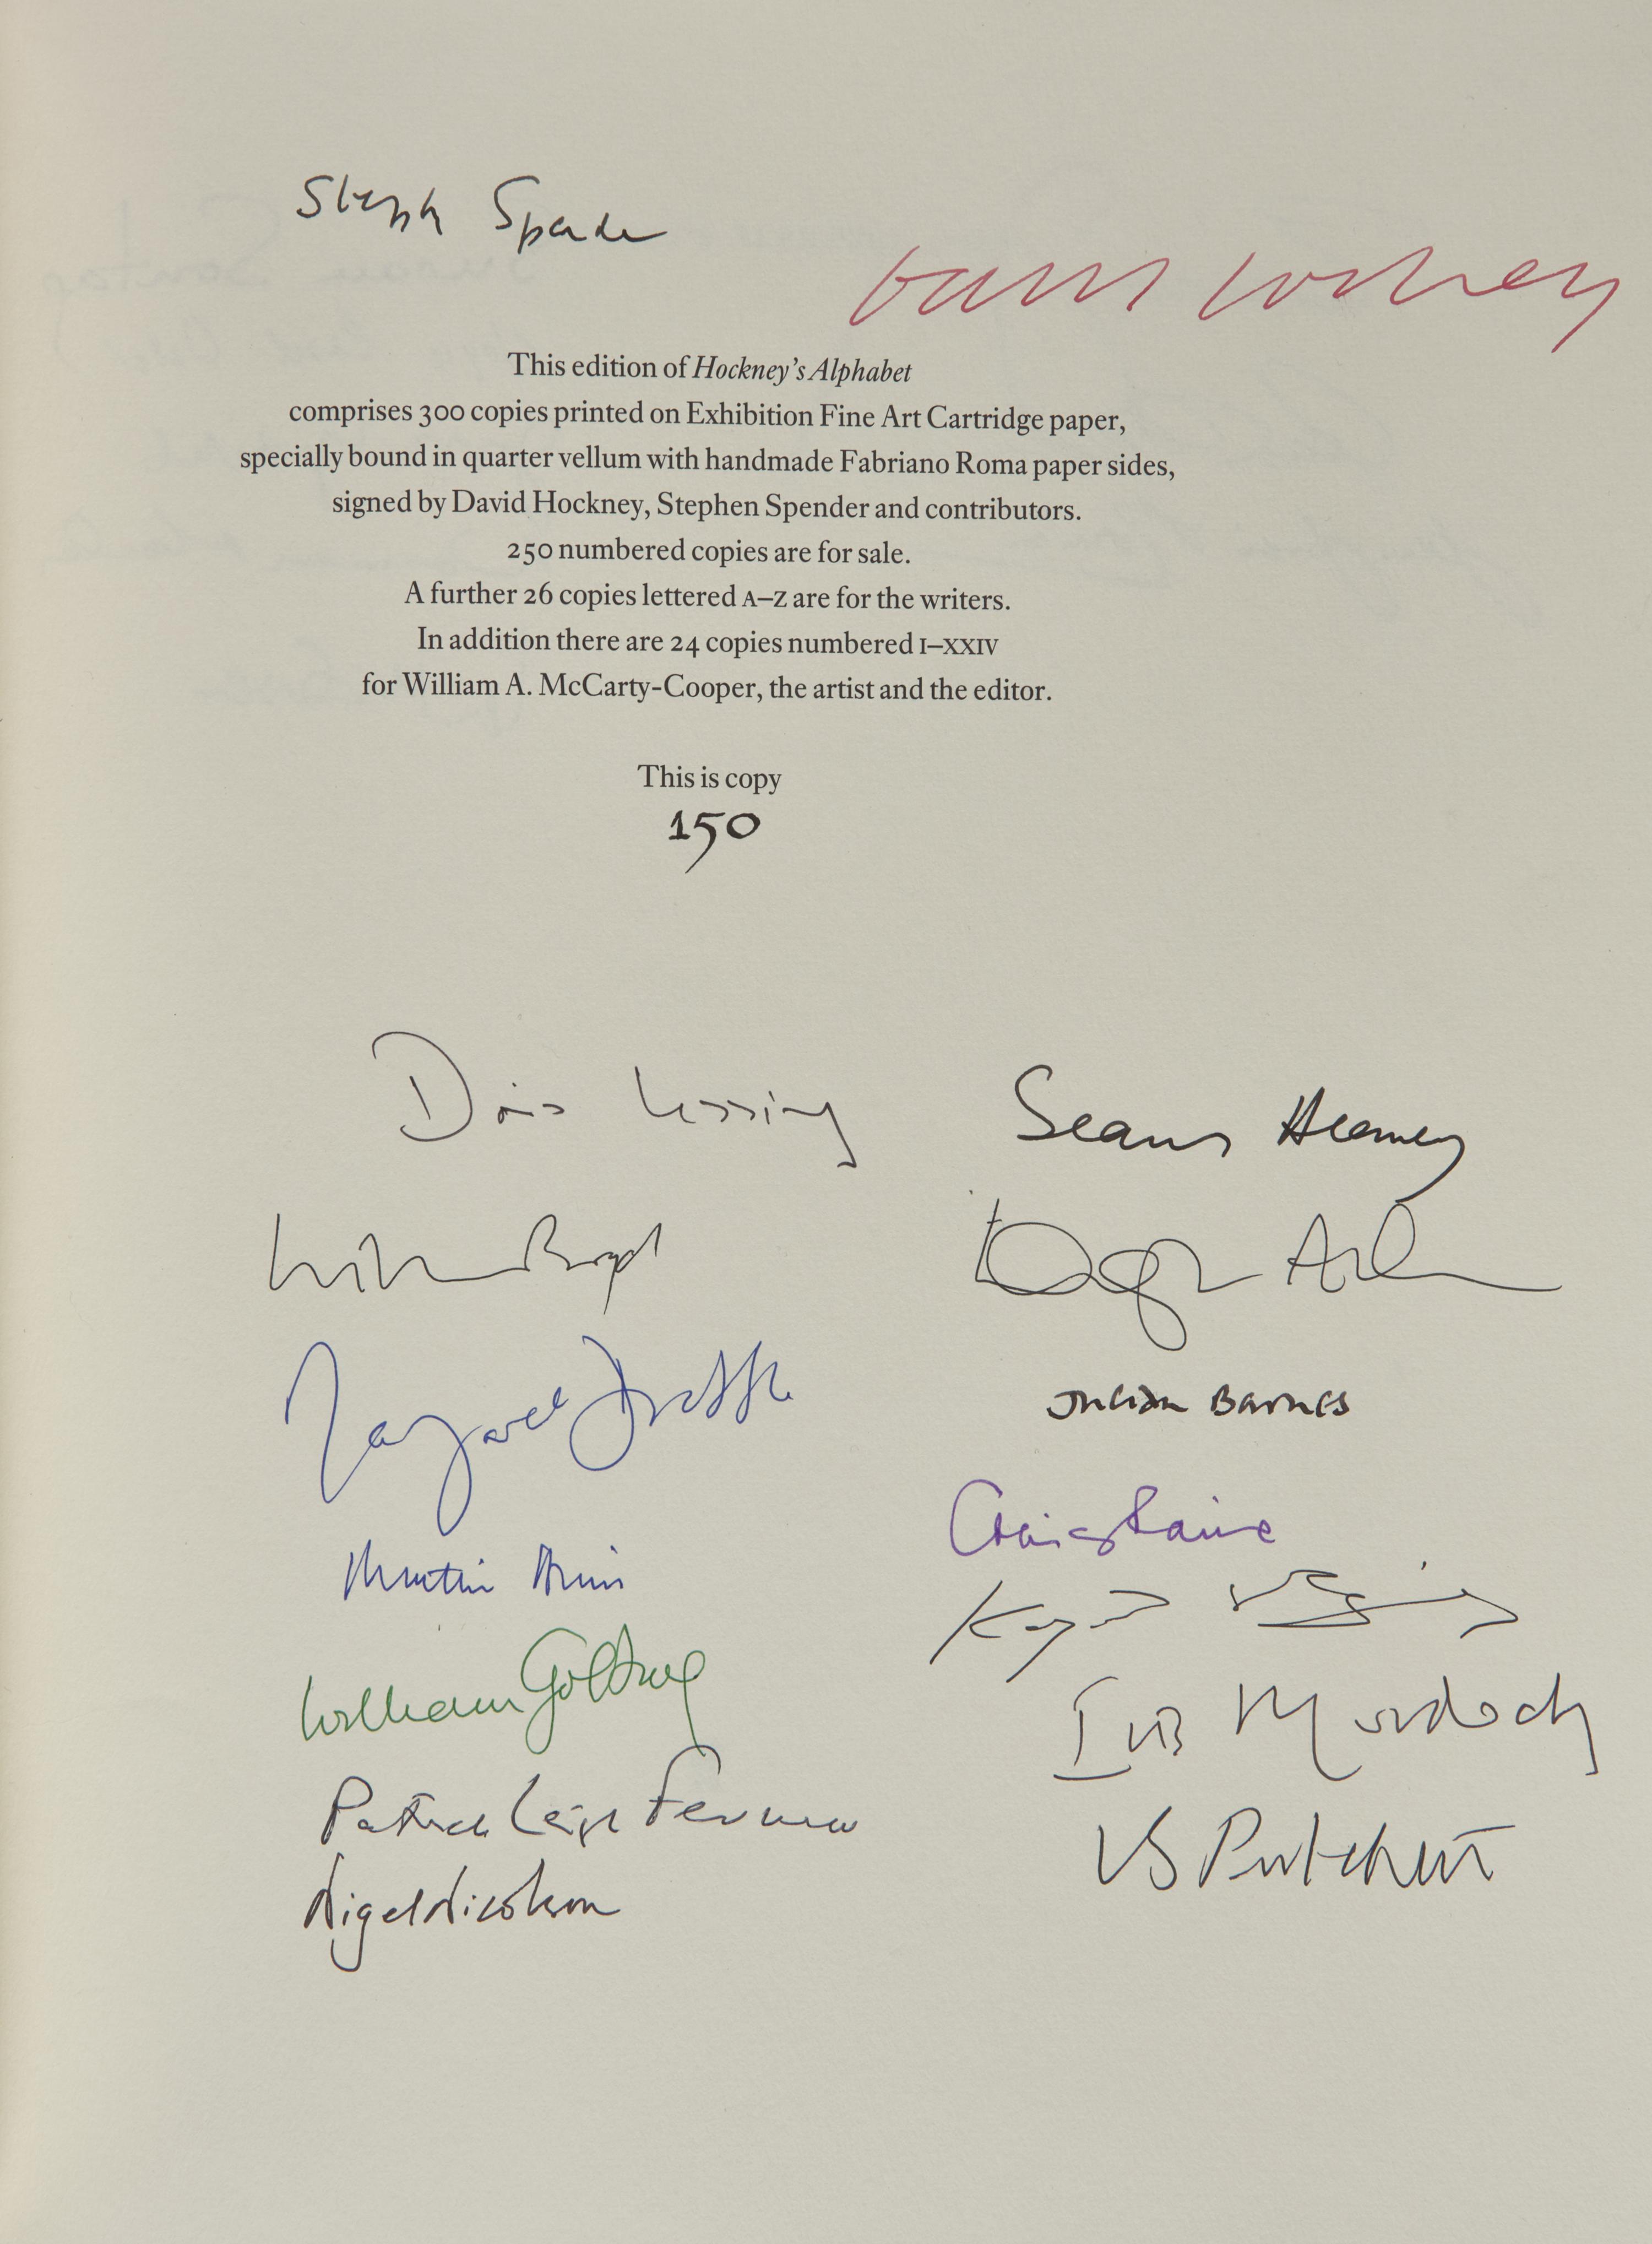 Stephen Spender
David Hockney
This edition of Hockney's Alphabet
comprises 300 copies printed on Exhibition Fine Art Cartridge paper,
specially bound in quarter vellum with handmade Fabriano Roma paper sides,
signed by David Hockney, Stephen Spender and contributors.
250 numbered copies are for sale.
A further 26 copies lettered A–Z are for the writers.
In addition there are 24 copies numbered I–XXIV
for William A. McCarty-Cooper, the artist and the editor.
This is copy
150
Doris Lessing
Seamus Heaney
William Boyd
Douglas Adams
Margaret Drabble
Julian Barnes
Martin Amis
Craig Raine
William Golding
Kazuo Ishiguro
Iris Murdoch
Patrick Leigh Fermor
VS Pritchett
Nigel Nicolson